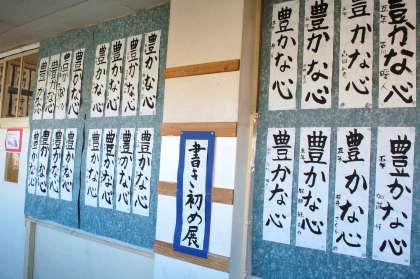 豊かな心
豊かな心
豊かな心
豊かな心
豊かな心
豊かな心
豊かな心
豊かな心
書き初め展
豊かな心
豊かな心
豊かな心
豊かな心
豊かな心
豊かな心
豊かな心
豊かな心
豊かな心
豊かな心
豊かな心
豊かな心
豊かな心
豊かな心
豊かな心
豊かな心